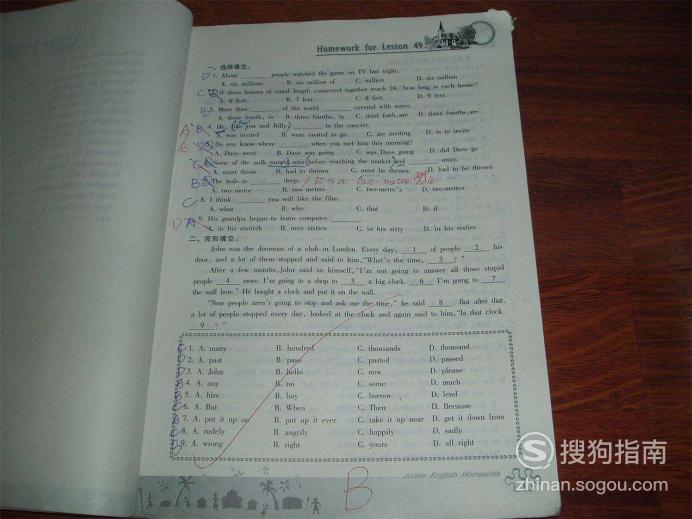 Homework for Lesson 49
一、选择填空。
1. About ______ people watched the game on TV last night.
A. six millions B. six million of C. million D. six million
2. If three houses of equal length connected together reach 24, how long is each house?
A. 6 feet. B. 7 feet. C. 8 feet. D. 9 feet.
3. More than ______ of the world ______ covered with water.
A. three fourth, is B. three fourths, is C. third forth, are D. three fourths, are
4. He, like you and Billy, ______ to the concert.
A. was invited B. were invited to go C. are inviting D. is to invite
5. Do you know where ______ when you met him this morning?
A. Dave went B. Dave was going C. was Dave going D. did Dave go
6. Some of the milk turned sour before reaching the market and ______ away.
A. must throw B. had to thrown C. must be thrown D. had to be thrown
7. The hole is ______ deep. It is a two-metre
A. two metre B. two metres C. two-metre's D. two-metres
8. I think ______ you will like the film.
A. what B. who C. that D. if
9. His grandpa began to learn computer ______.
A. in his sixtieth B. over sixties C. in his sixty D. in his sixties
二、完形填空。
John was the doorman of a club in London. Every day, 1 of people 2 his
door, and a lot of them stopped and said to him, "What's the time, 3 ?"
After a few months, John said to himself, "I'm not going to answer all those stupid
people 4 more. I'm going to a shop to 5 a big clock. 6 I'm going to 7
the wall here." He bought a clock and put it on the wall.
"Now people aren't going to stop and ask me the time," he said 8 . But after that,
a lot of people stopped every day, looked at the clock and again said to him, "Is that clock
9 ?"
1. A. many B. hundred C. thousands D. thousand
2. A. past B. pass C. pasted D. passed
3. A. John B. hello C. now D. please
4. A. any B. no C. some D. much
5. A. hire B. buy C. borrow D. lend
6. A. But B. When C. Then D. Because
7. A. put it up on B. put up it ever C. take it up near D. get it down from
8. A. rudely B. angrily C. happily D. sadly
9. A. wrong B. right C. yours D. all right
B
Junior English Homework
搜狗指南
zhinan.sogou.com